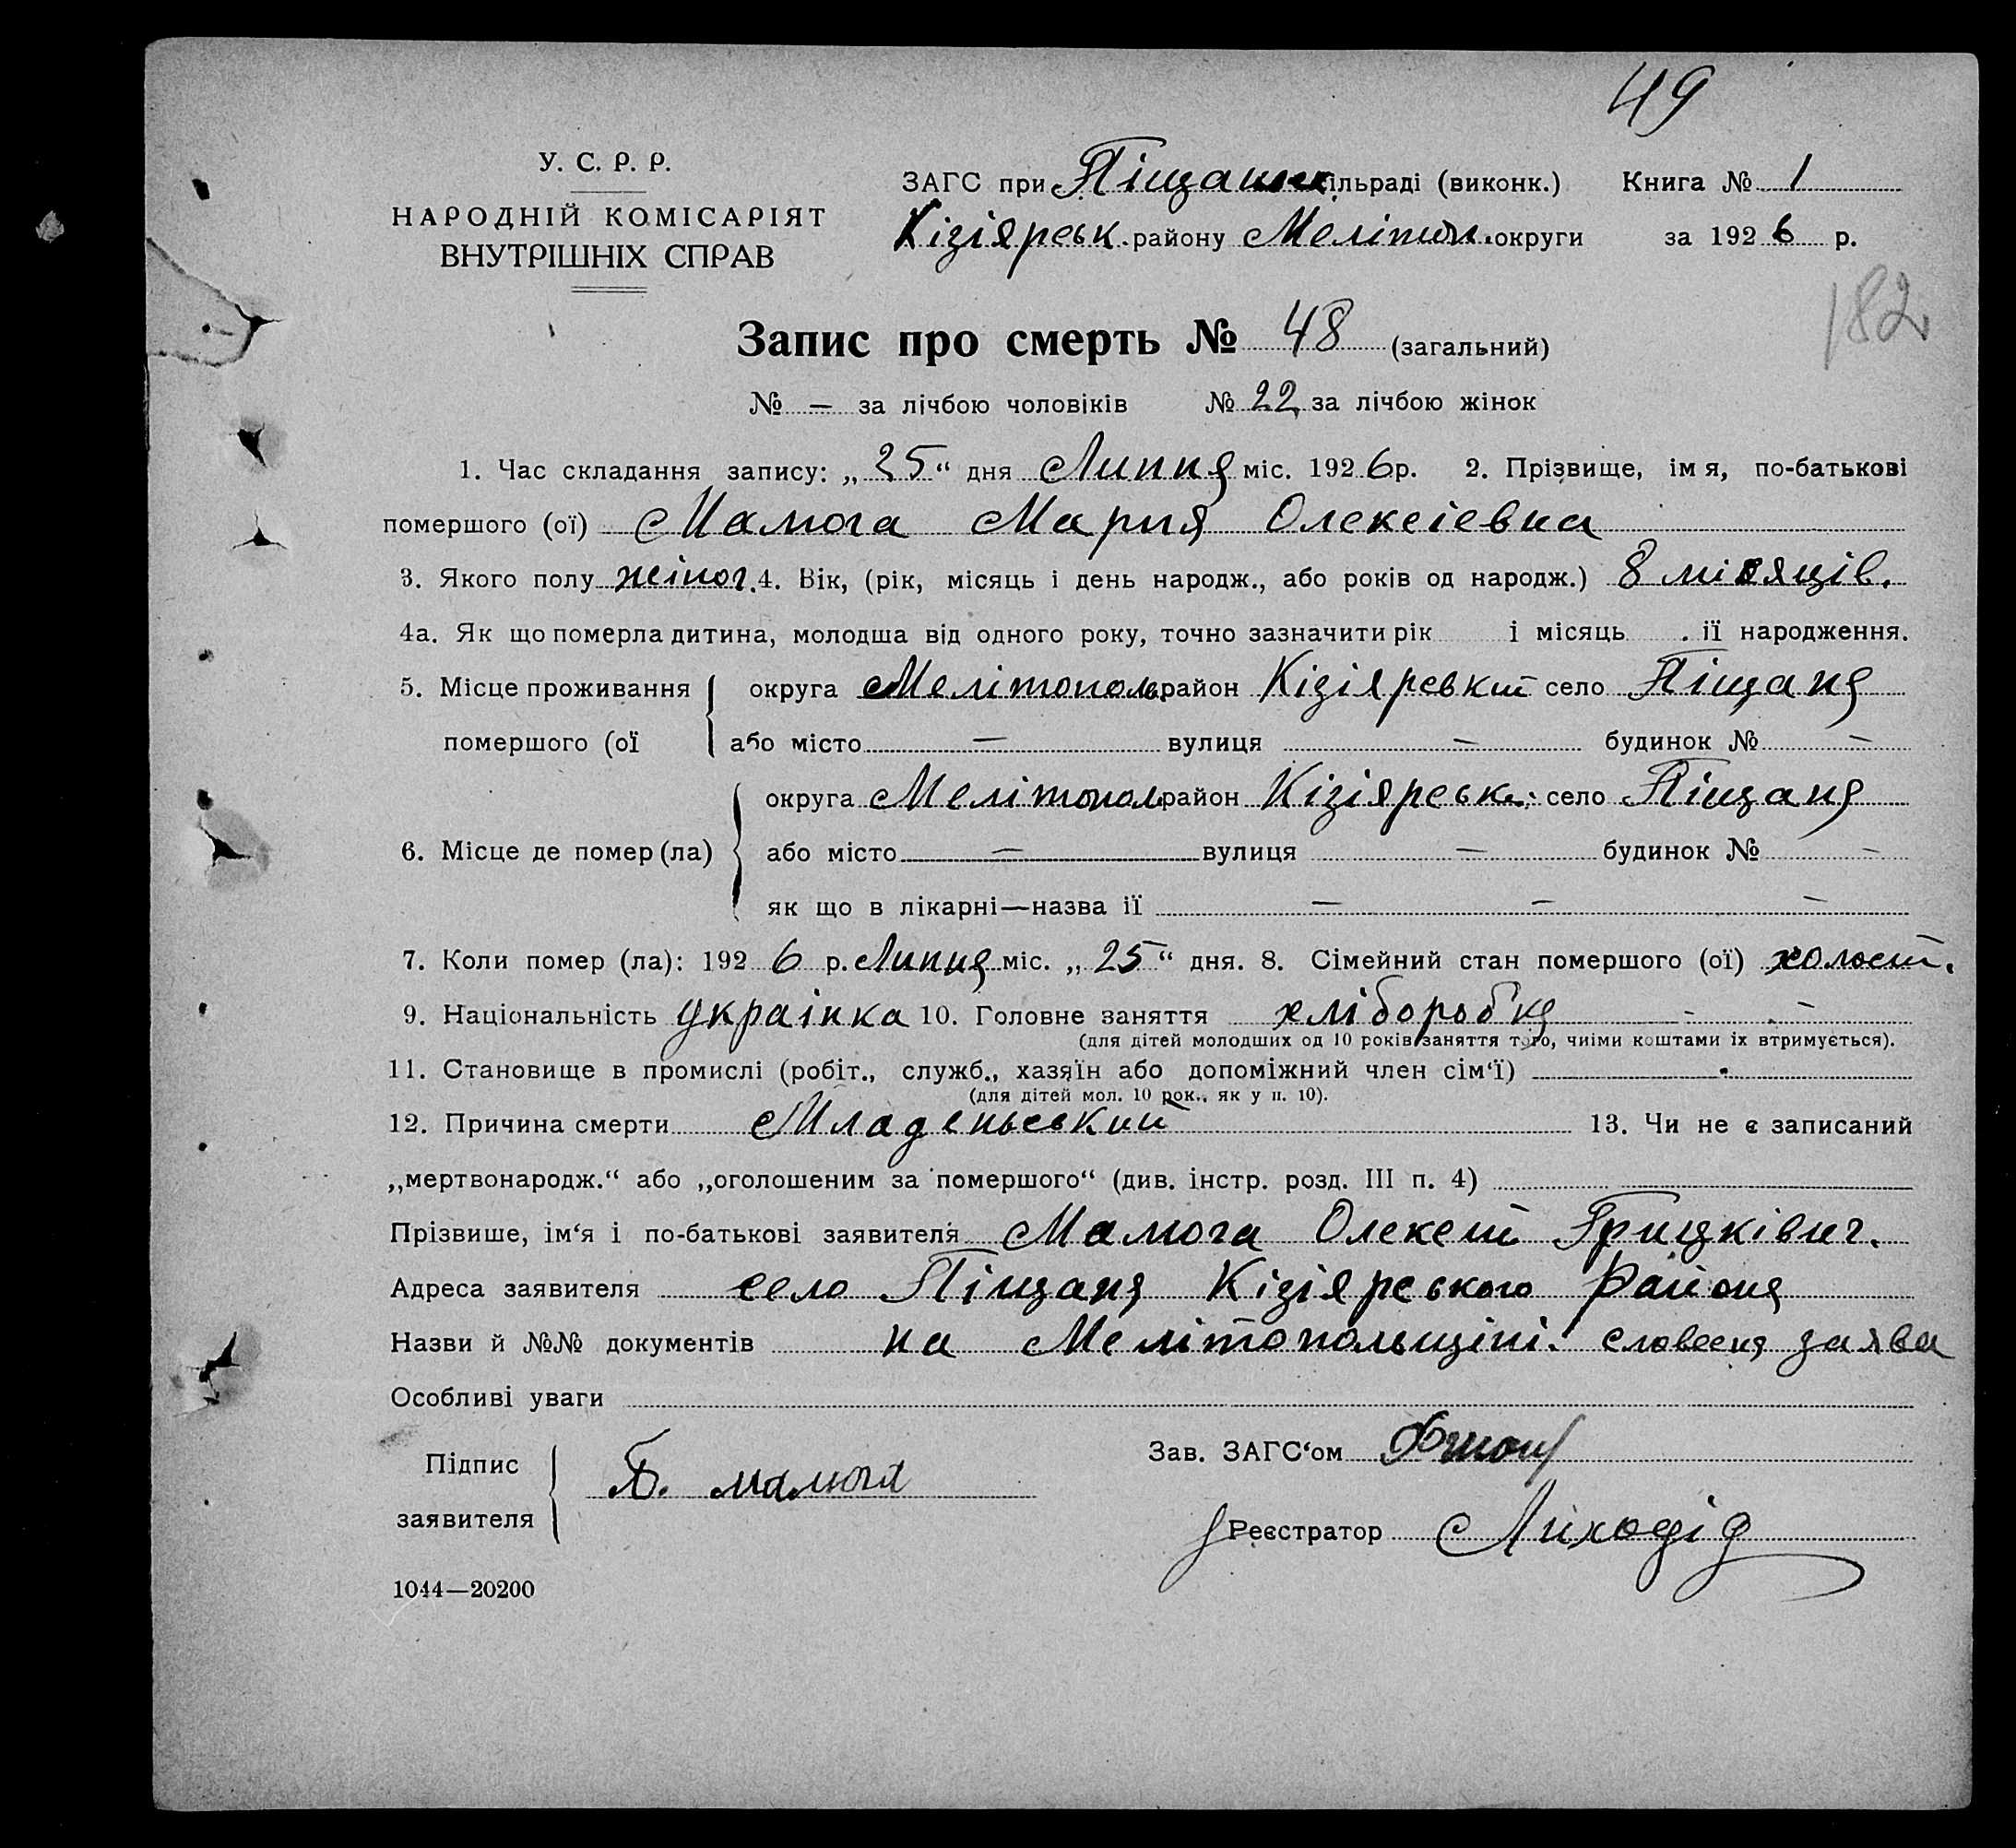 49
У. С. Р. Р.
НАРОДНІЙ КОМІСАРІЯТ
ВНУТРІШНІХ СПРАВ
ЗАГС при Піщанськ сільраді (виконк.) Книга № 1
Кізіярськ. району Мелітоп. округи за 1926 р.
182
Запис про смерть № 48 (загальний)
№ — за лічбою чоловіків № 22 за лічбою жінок
1. Час складання запису: „25“ дня Липня міс. 1926 р. 2. Прізвище, імя, по-батькові
помершого (ої) Мамога Мария Олексіевна
3. Якого полу жіноч. 4. Вік, (рік, місяць і день народж., або років од народж.) 8 місяців.
4а. Як що померла дитина, молодша від одного року, точно зазначити рік і місяць . ії народження.
5. Місце проживання округа Мелітополь район Кізіяревкий село Піщаня
помершого (ої або місто — вулиця — будинок № —
округа Мелітопол район Кізіяреськ. село Піщаня
6. Місце де помер (ла) або місто — вулиця — будинок № —
як що в лікарні—назва ії — — —
7. Коли помер (ла): 1926 р. Липня міс. „25“ дня. 8. Сімейний стан помершого (ої) холост.
9. Національність українка 10. Головне заняття хліборобка - -
(для дітей молодших од 10 років заняття того, чиїми коштами їх втримується).
11. Становище в промислі (робіт., служб., хазяїн або допоміжний член сім‘ї)
(для дітей мол. 10 рок., як у п. 10).
12. Причина смерти Младеньеський 13. Чи не є записаний
„мертвонародж.“ або „оголошеним за помершого“ (див. інстр. розд. III п. 4)
Прізвише, ім‘я і по-батькові заявителя Мамога Олексій Грицківич.
Адреса заявителя село Піщаня Кізіяреського Района
Назви й №№ документів на Мелітопольщіні. словесня заява
Особливі уваги
Підпис
заявителя
мамога
Зав. ЗАГС‘ом
Реєстратор Лиходід
1044—20200